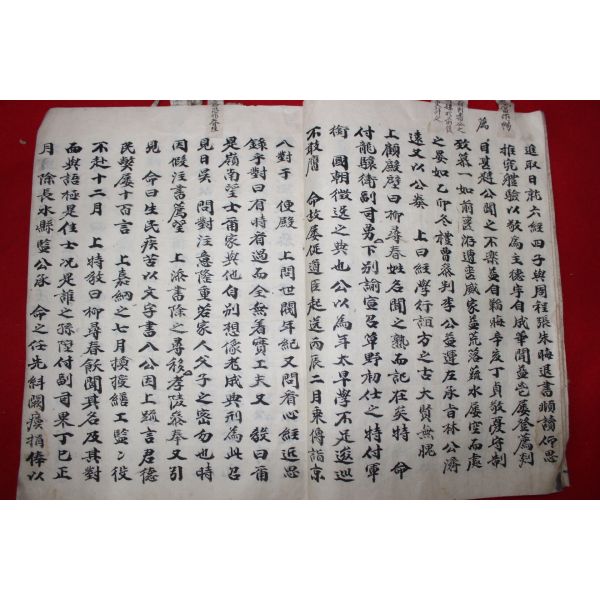 進取日兢六經四子與周程張朱晦退書順讀仰思
推究體驗以敬為主德字自成華聞益屢登薦剡
為目甚
公聞之不樂益自韜晦辛亥丁貞敬憂守制
致慕一如前喪 遭 威家益荒落疏水屢空而處
之晏如乙卯冬禮曹參判李公益運左承旨林公濟
遠又以公奏 上曰經學行誼方之古大賢無愧
上顧殿壁曰柳尋春姓名聞之熟而記在矣特 命
付龍驤衛副司勇下別諭宣召草野初仕之特付軍
銜 國朝徵逸之典也公以為年太早學不足逡巡
不敢膺 命故屢促道臣起送丙辰二月乘傳詣京
入對于 便殿 上問世閥年紀又問看心經近思
錄乎對曰有時看過而全無着實工夫又 教曰爾
是嶺南望士爾家與他自別想像老成典刑為此召
見日矣 問對注意隆重若家人父子之密勿也時
因假注書薦望 上添書除之尋移孝陵參奉又引
見 命曰生民疾苦以文字書入公因上疏言君德
民弊屢十百言 上嘉納之七月換授繕工監役
不赴十二月 上特教曰柳尋春飫聞其名及其對
面與語極是佳士況是誰之孫陞付副司果丁巳正
月 除長水縣監公承 命之任先糾闕瘼捐俸以